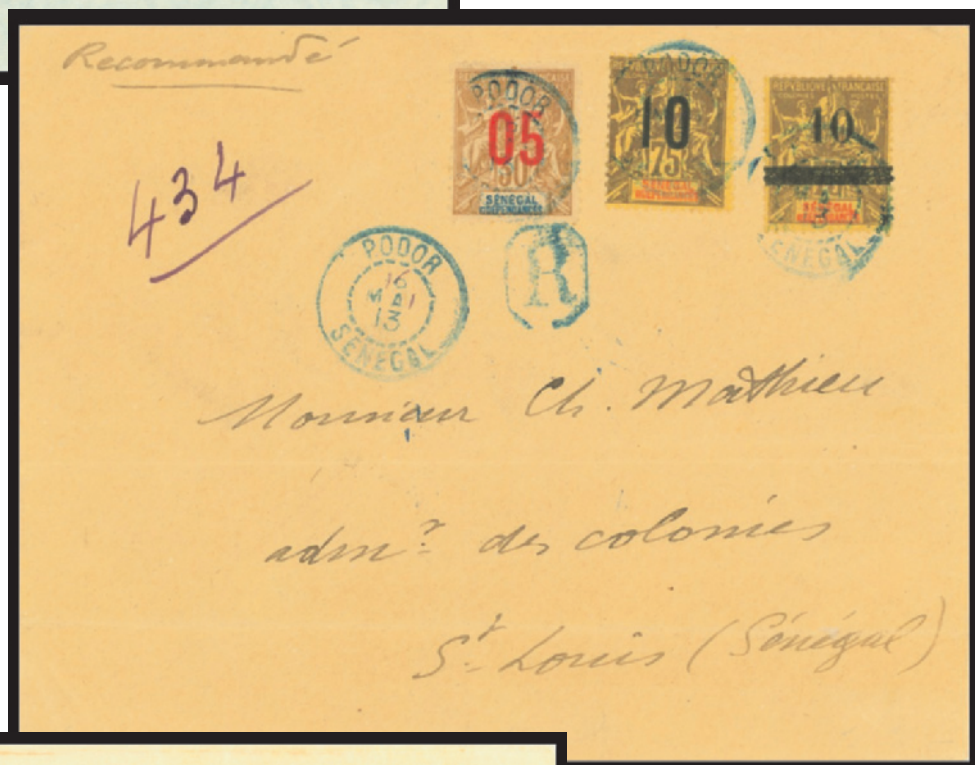 Recommandé
434
PODOR
05
30
SÉNÉGAL
ET DÉPENDANCES
PODOR
10
75
SÉNÉGAL
ET DÉPENDANCES
RÉPUBLIQUE FRANÇAISE
10
SÉNÉGAL
ET DÉPENDANCES
SÉNÉGAL
PODOR
16
MAI
13
SÉNÉGAL
R
Monsieur Ch. Mathieu
admr des colonies
St. Louis (Sénégal)